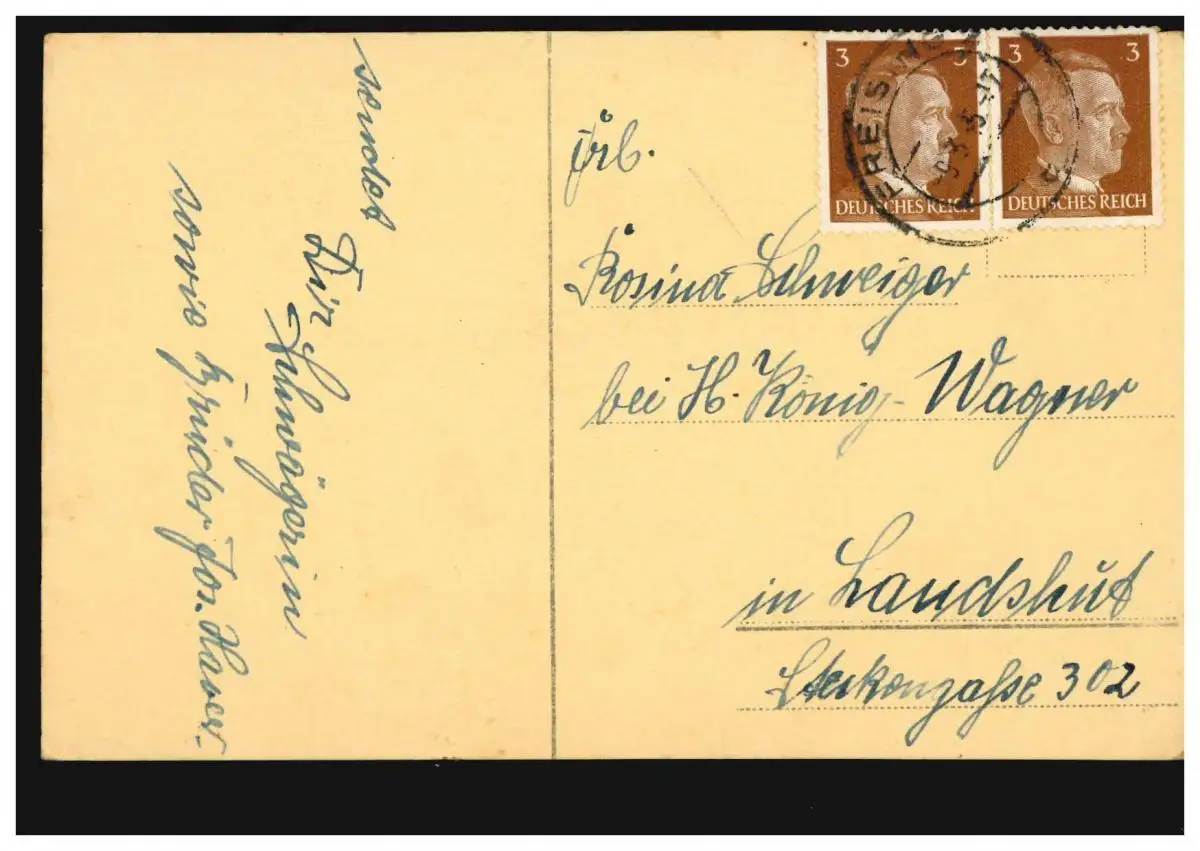 sendet
Dir
Schwägerin
sowie Brüder Jos. Xaver.
3 3
DEUTSCHES REICH
3 3
DEUTSCHES REICH
FREISING
Frl.
Rosina Schweiger
bei H. König-Wagner
in Landshut
Steckengaße 302